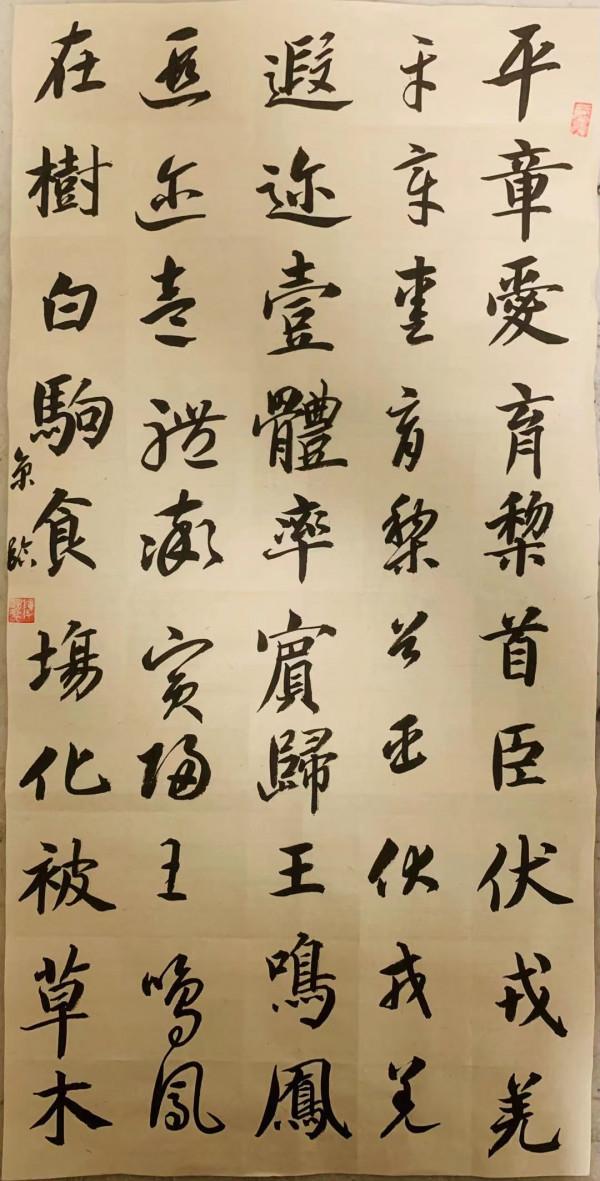 平章愛育黎首臣伏戎羌
平章愛育黎首臣伏戎羌
遐迩壹體率賓歸王鳴鳳
遐迩壹體率賓歸王鳴鳳
在樹白駒食場化被草木
臨